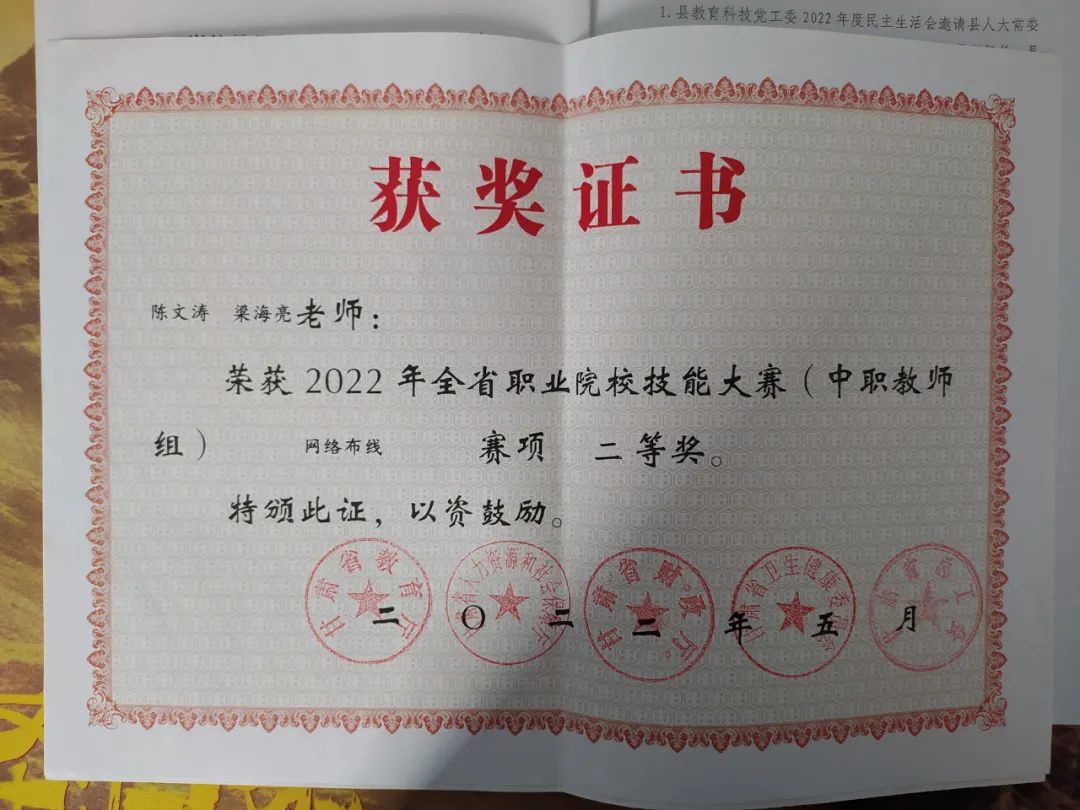 1.县教育科技党工委2022年度民主生活会邀请县人大常委
获奖证书
陈文涛 梁海亮老师：
荣获2022年全省职业院校技能大赛（中职教师
组） 网络布线 赛项 二等奖。
特颁此证，以资鼓励。
甘肃省教育厅
甘肃省人力资源和社会保障厅
甘肃省财政厅
甘肃省卫生健康委员会
二〇二二年五月